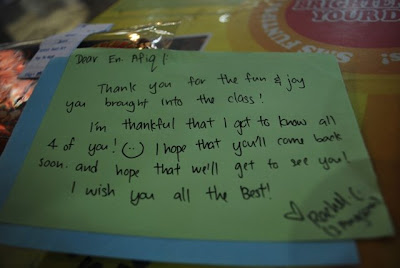 Dear En. Afiq!
Thank you for the fun & joy
you brought into the class!
I'm thankful that I got to know all
4 of you! I hope that you'll come back
soon. and hope that we'll get to see you!
I wish you all the Best!
BRIGHTEN
YOUR D